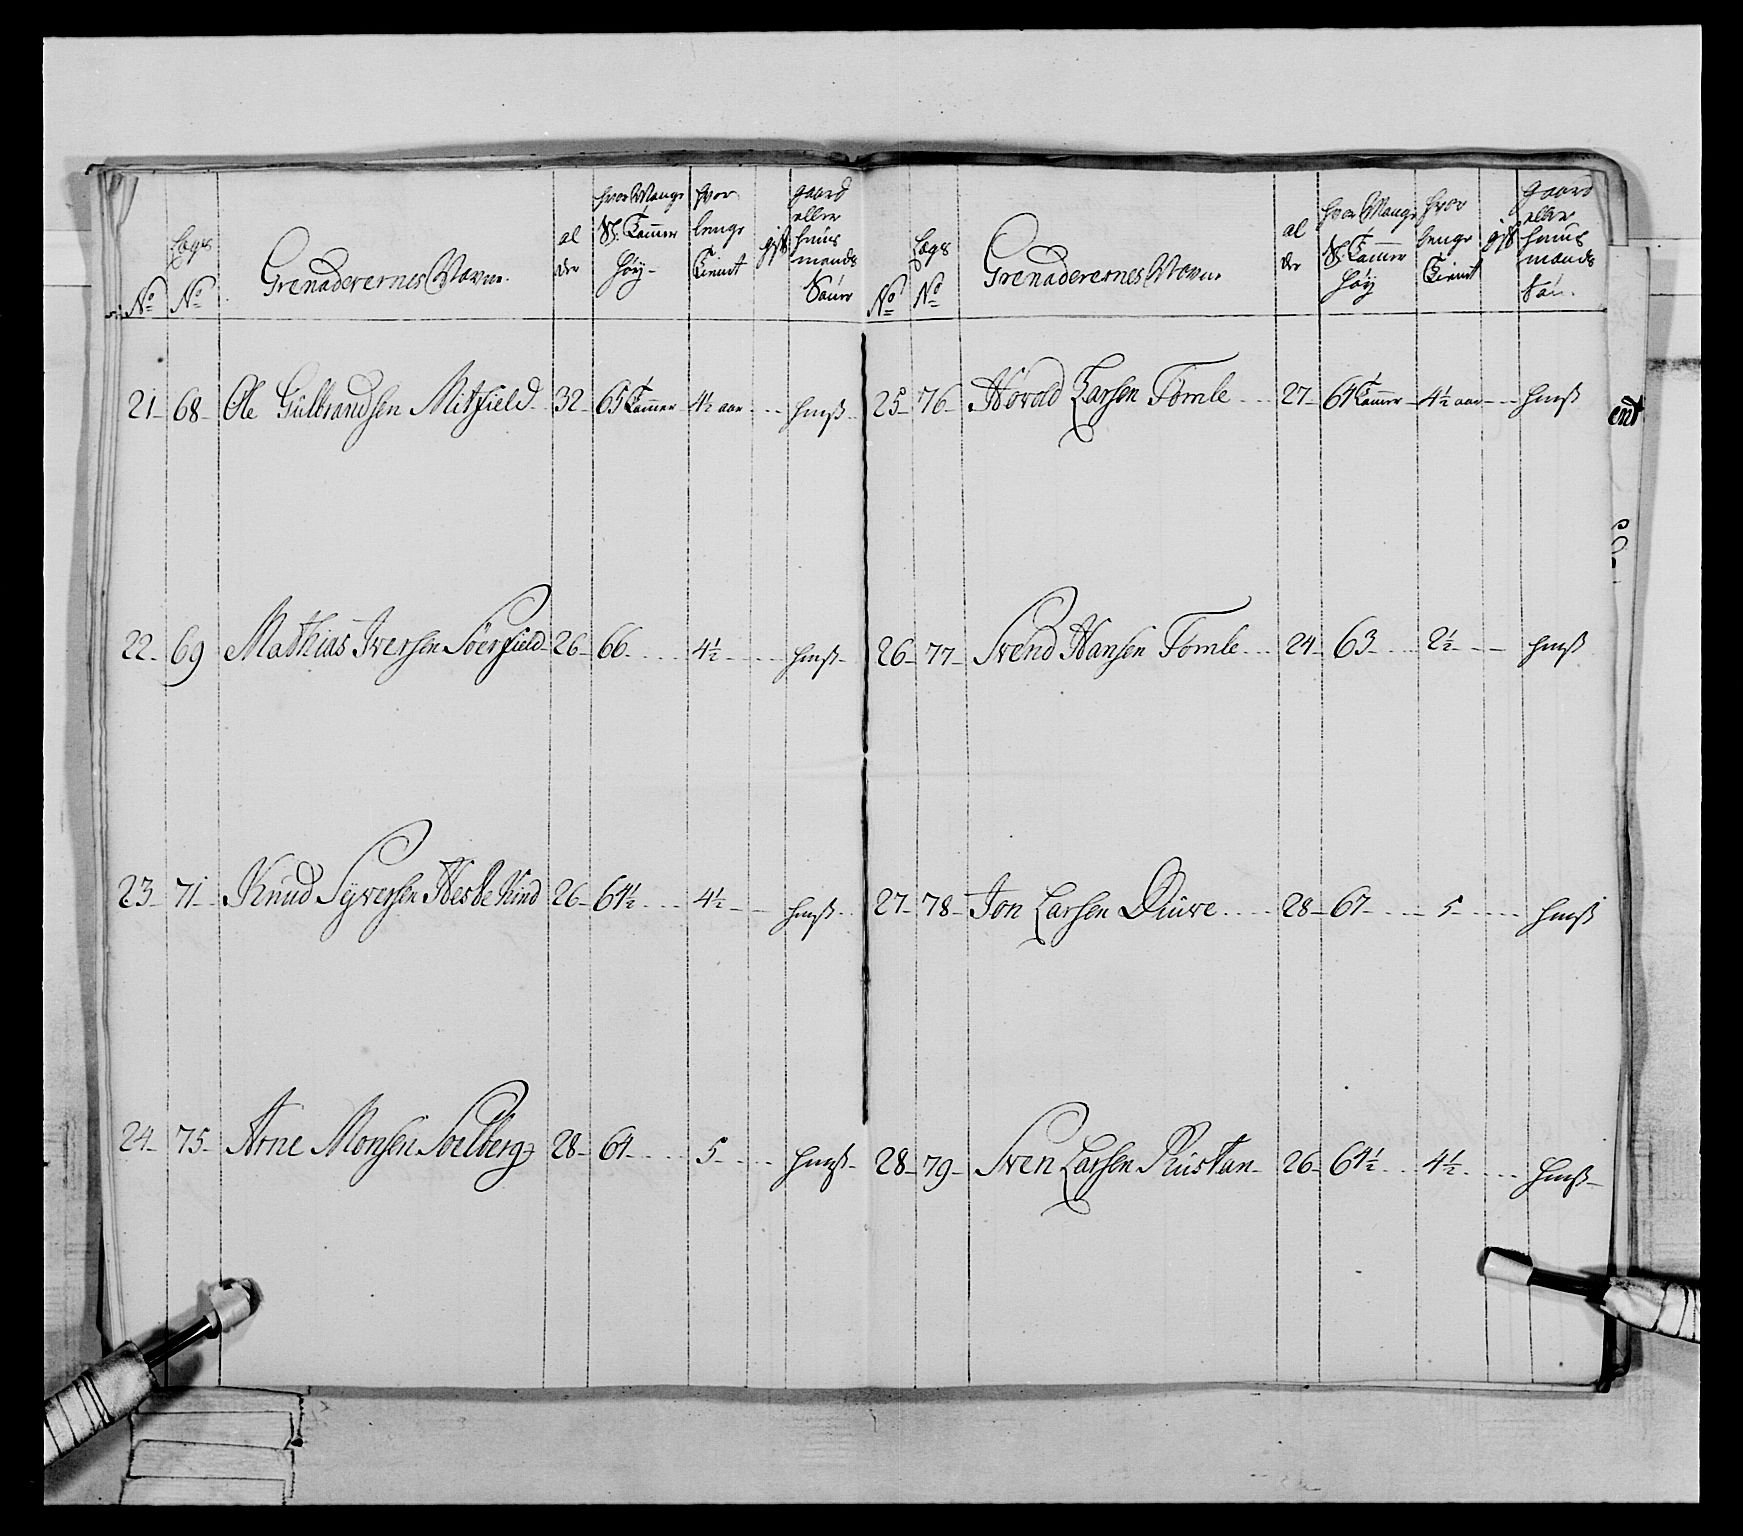 No
Lægs No
Grenaderernes Navne.
al der
hvor Mange Tommer høÿ-
hvor lenge Tient
gift
gaard eller huus mands Sønner
21- 68- Ole Gülbrandsen Mitfield 32- 65 Tommer 4½ aar huuß
22- 69 Mathias Iversen Söerfield 26- 66 4½ huuß
23- 71- Knud Sÿversen Heste Kind 26- 64½ 4½ huuß
24- 75- Arne Monsen Soelberg 28- 64 5 huuß
No
Lægs No
Grenaderernes Navne
al der
hvor Mange Tommer høÿ
hvor lenge Tient
gift
gaard eller huus mands Søn.
25- 76- Hovold Larsen Tomle 27- 64 Tommer 4½ aar huuß
26- 77- Svend Hansen Tomle 24- 63 2½ huuß
27- 78- Jon Larsen Diuve 28- 67 5 huuß
28- 79- Sven Larsen Rüstan 26- 64½ 4½ huuß
ent